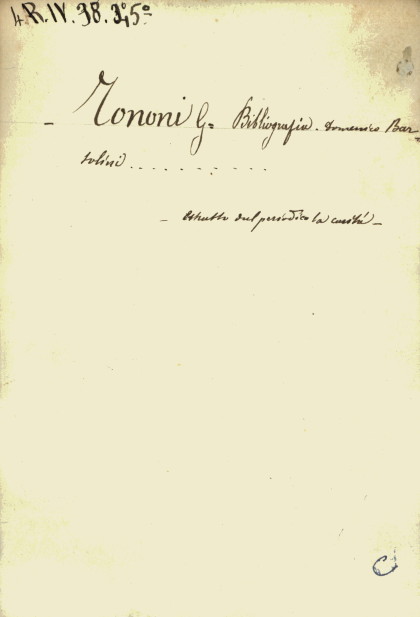 4.R.IV.38.345°
- Tononi G= Bibliografia. Domenico Bar=
tolini. . . . . . . . . . .
- Estratto dal periodico la carità -